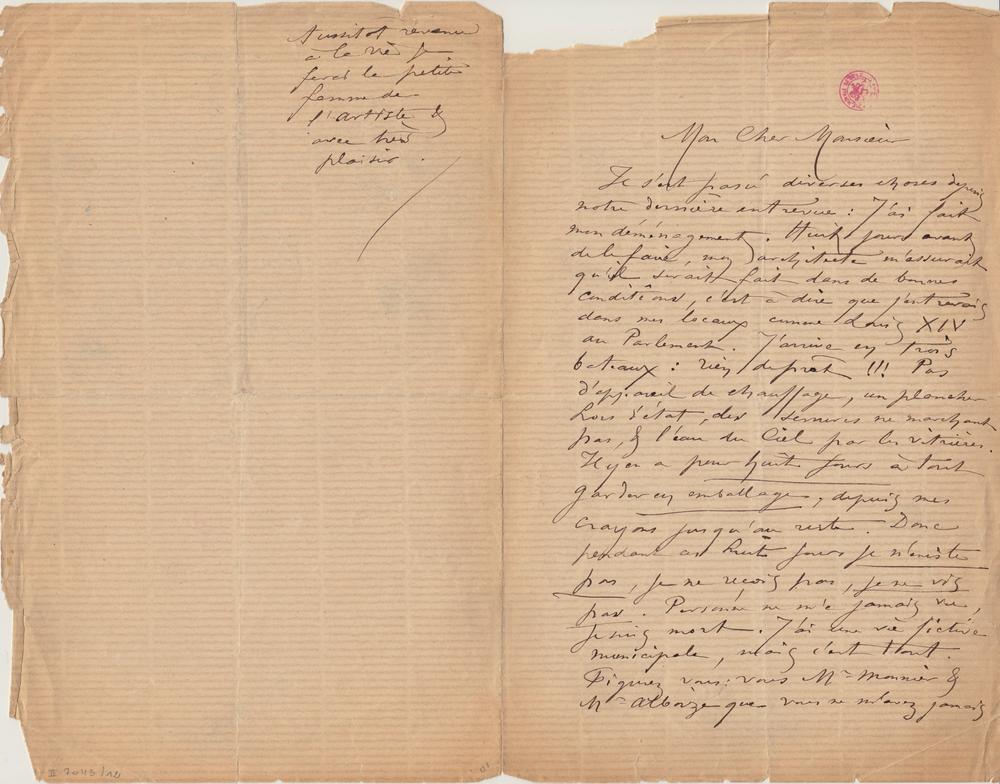 Aussitôt revenue
à la vie je
ferai la petite
femme de
l'artiste &
avec très
plaisir.
Mon Cher Monsieur
Il s'est passé diverses choses depuis
notre dernière entrevue : J'ai fait
mon déménagement. Huit jours avant
de le faire, mon architecte m'assurait
qu'il serait fait dans de bonnes
conditions, c'est à dire que j'entrerais
dans mes locaux comme Louis XIV
au Parlement. J'arrive en trois
bateaux : rien de prêt !!! Pas
d'appareil de chauffage, un plancher
hors d'état, des serrures ne marchant
pas, & l'eau du Ciel par les vitrières.
Il y en a pour huit jours à tout
garder en emballage, depuis mes
crayons jusqu'au reste. Donc
pendant ces huit jours je n'existe
pas, je ne reçois pas, je ne vis
pas. Personne ne m'a jamais vue,
je suis mort. J'ai une vie fictive
municipale, mais c'est tout.
Figurez vous : vous Mr Monnier &
Mr Alboize que vous ne m'avez jamais
II 7043/12